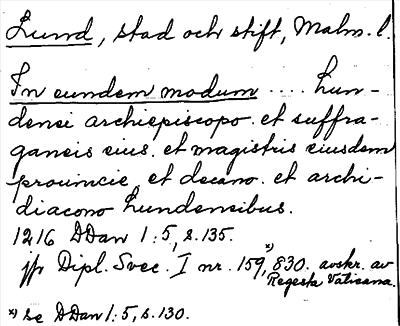 Lund, stad och stift, Malm. l.
In eundem modum .... Lun-
densi archiepiscopo. et suffra-
ganeis eius. et magistris eiusdem
prouincie et decano. et archi-
diacono Lundensibus.
1216 DDan 1:5, s. 135.
jfr Dipl. Svec. I nr. 159, 830. avskr. av
x)
Regesta Vaticana.
x) se DDan 1:5, s. 130.